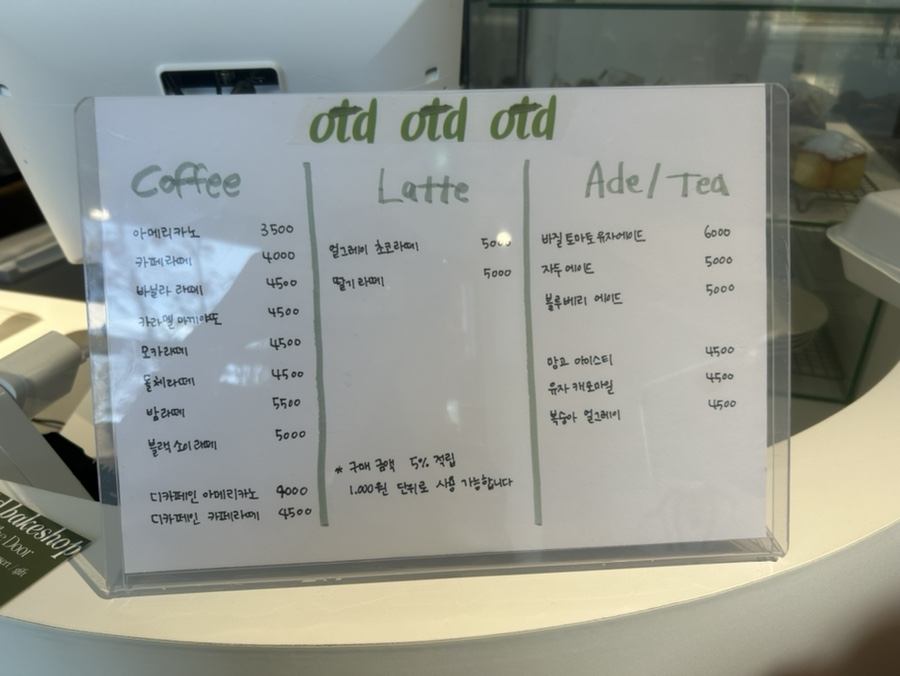 otd otd otd
Coffee
아메리카노 3500
카페라떼 4000
바닐라 라떼 4500
카라멜 마끼야또 4500
모카라떼 4500
돌체라떼 4500
밤라떼 5500
블랙 소이 라떼 5000
디카페인 아메리카노 4000
디카페인 카페라떼 4500
Latte
얼그레이 초코라떼 5000
딸기 라떼 5000
* 구매 금액 5% 적립
1.000원 단위로 사용 가능합니다
Ade/Tea
바질 토마토 유자에이드 6000
자두 에이드 5000
블루베리 에이드 5000
망고 아이스티 4500
유자 캐모마일 4500
복숭아 얼그레이 4500
bakeshop
Door